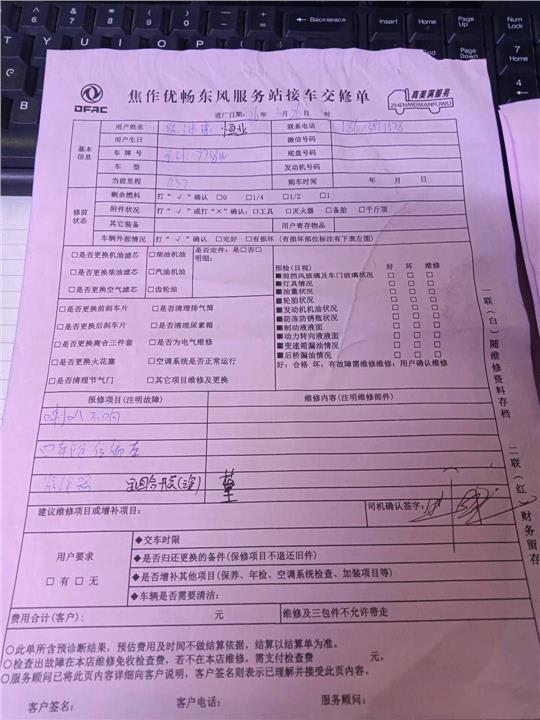 Backspace
Insert
Home
Page Up
Num Lock
Delete
End
Page Down
7 Home
4
DFAC
焦作优畅东风服务站接车交修单
真美满服务
ZHENMEIMANFUWU
进厂日期: 年 月 日 时
基本信息
用户姓名 恒业 联系电话
用户生日 微信号码
车牌号 底盘号码
车型 发动机号码
当前里程 购车时间 年 月 日
修前状态
剩余燃料 打“√”确认 □0 □1/4 □1/2 □1
附件状况 打“√”或打“×”确认:□工具 □灭火器 □备胎 □千斤顶
其它装备 用户寄存物品
车辆外部情况 打“√”确认 □完好 □有损坏(有损坏部位标注有下表左图)
□是否更换机油滤芯 □柴油机油 是否定件:是□否□
□是否更换柴油滤芯 □汽油机油 明细:
□是否更换空气滤芯 □齿轮油
□是否更换前刹车片 □是否清理排气筒
□是否更换后刹车片 □是否清理尿素箱
□是否更换离合三件套 □是否为电气维修
□是否更换火花塞 □空调系统是否正常运行
□是否清理节气门 □其它项目维修及更换
预检(目视) 好 坏 维修
■前挡风玻璃及车门玻璃状况 □ □ □
■灯具情况 □ □ □
■油量状况 □ □ □
■轮胎状况 □ □ □
■发动机机油状况 □ □ □
■防冻防锈瓶状况 □ □ □
■制动液液面 □ □ □
■动力转向液液面 □ □ □
■变速箱漏油情况 □ □ □
■后桥漏油情况 □ □ □
好:合格 坏:有故障需维修维修:用户确认维修
报修项目(注明故障) 维修内容(注明维修部件)
喇叭不响
建议维修项目或增补项目: 司机确认签字:
用户要求
□有 □无
◆交车时限
◆是否归还更换的备件(保修项目不退还旧件)
◆是否增补其他项目(保养、年检、空调系统检查、加装项目等)
◆车辆是否需要清洁:
费用合计(客户): 元 维修及三包件不允许带走
○此单所含预诊断结果,预估费用及时间不做结算依据,结算以结算单为准。
○检查出故障在本店维修免收检查费,若不在本店维修,需支付检查费 元。
○服务顾问已将此页内容详细向客户说明,客户签名则表示已理解并接受此页内容。
客户签名: 客户电话: 服务顾问:
一联(白)随维修资料存档
二联(红)财务留存